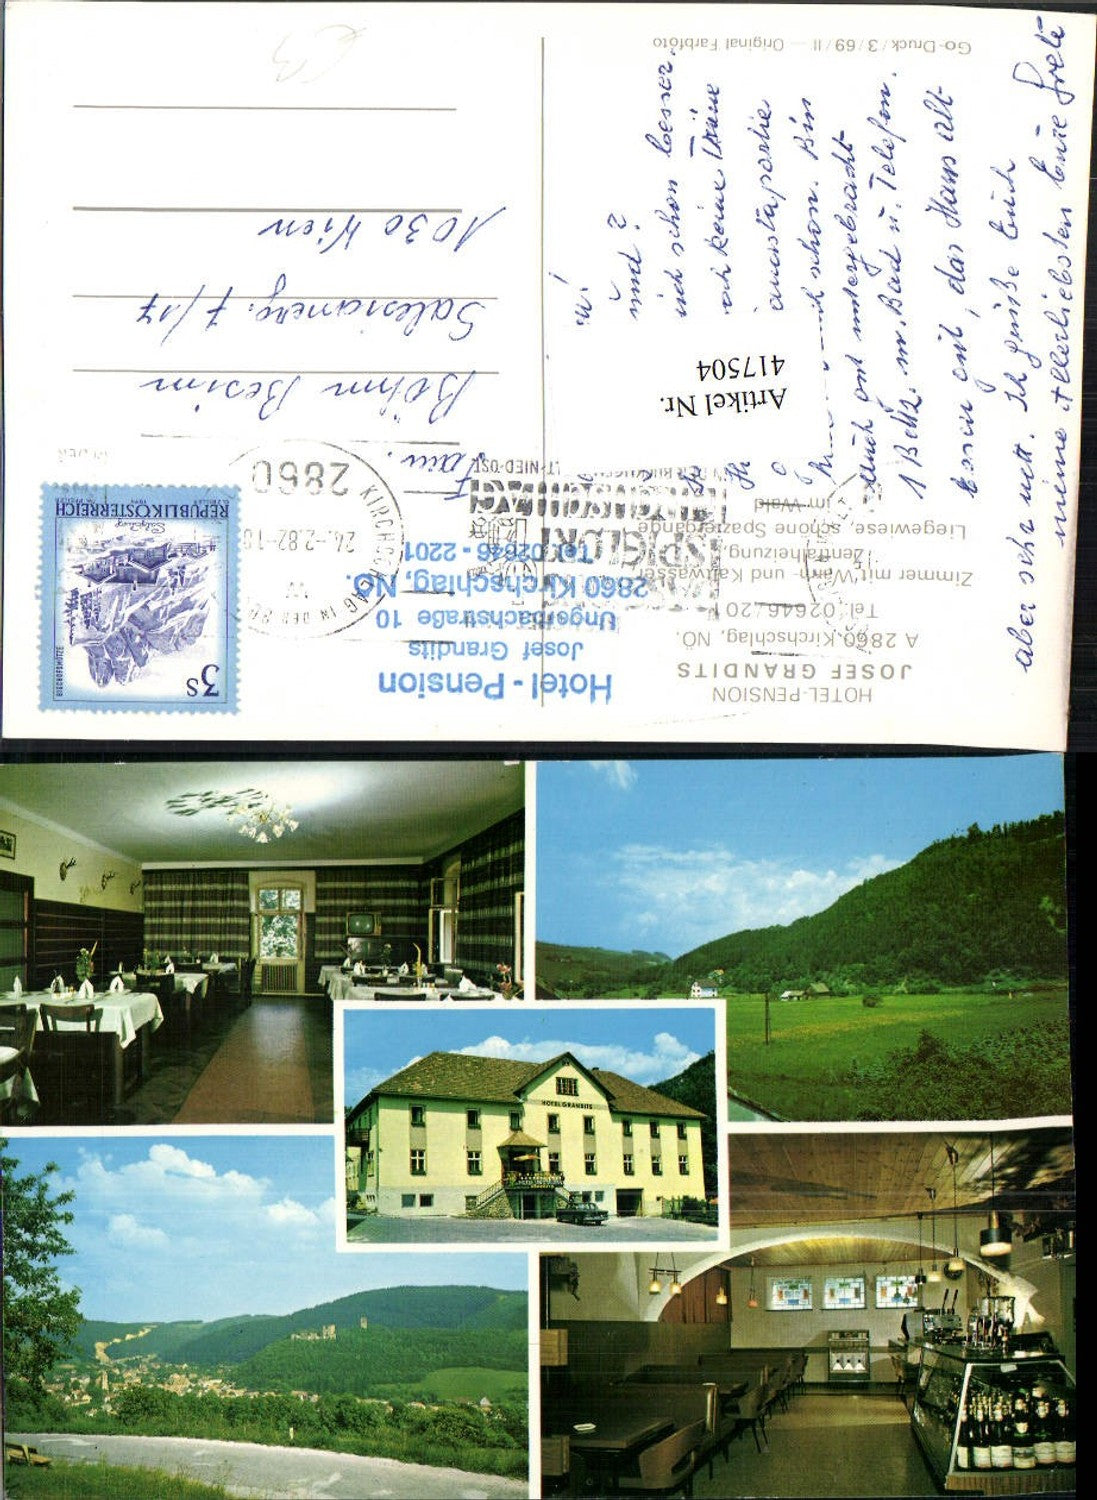 HOTEL-PENSION
JOSEF GRANDITS
A 2860 Kirchschlag, NÖ.
Tel. 02646/201
Zimmer mit Warm- und Kaltwasser,
Zentralheizung,
Liegewiese, schöne Spaziergänge
im Wald
Go-Druck / 3 / 69 / II — Original Farbfoto
Hotel-Pension
Josef Grandits
Ungerbachstraße 10
2860 Kirchschlag, NÖ.
Tel. 02646 - 2201
3 S
BISCHOFSMÜTZE
Salzburg
REPUBLIK ÖSTERREICH
2860 KIRCHSCHLAG IN DER
24.-2.82-10
PASSIONSSPIELORT
KIRCHSCHLAG
IN DER BUCKLIGEN WELT-NIED-ÖST
Artikel Nr.
417504
Böhm
Salesianerg. 7/17
1030 Wien
und?
ich schon besser.
keine
schon. Bin
auch gut untergebracht
1 Bettz. m. Bad u. Telefon.
Essen gut, das Haus alt-
aber sehr nett. Ich grüße Euch
meine Allerliebsten Eure Gretl
HOTEL GRANDITS